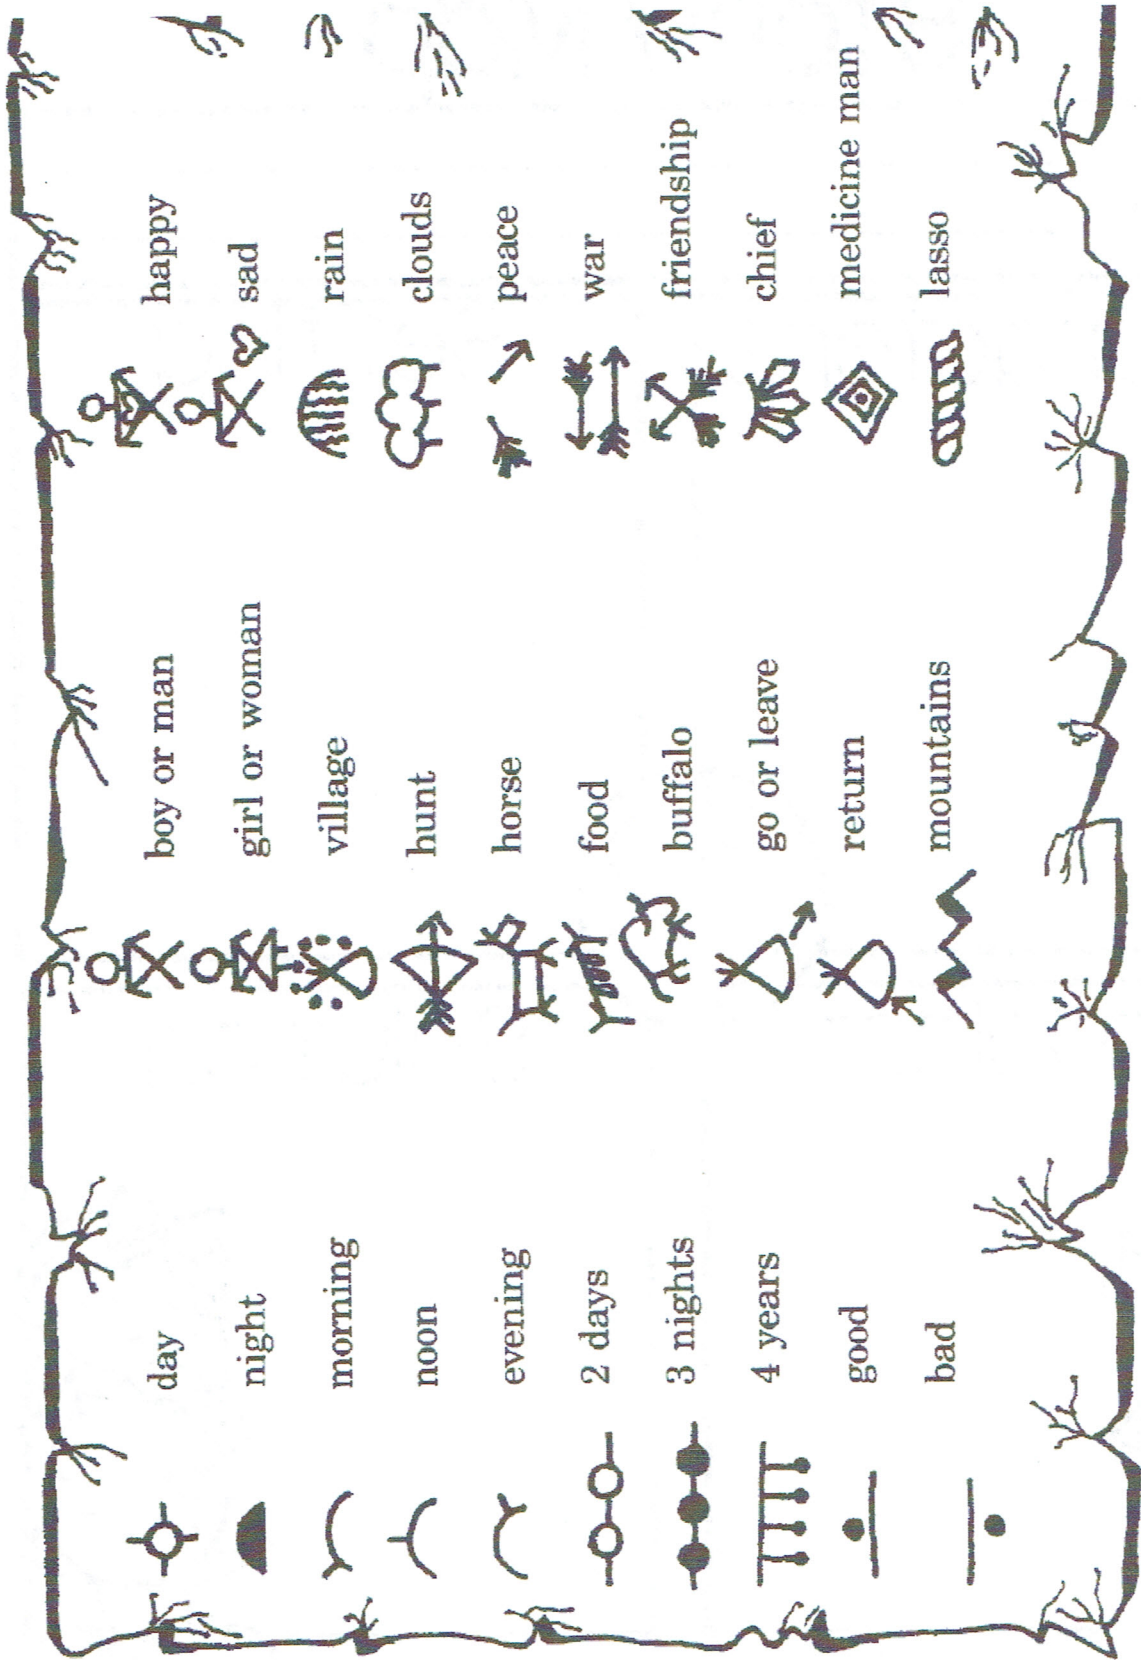 day
night
morning
noon
evening
2 days
3 nights
4 years
good
bad
boy or man
girl or woman
village
hunt
horse
food
buffalo
go or leave
return
mountains
happy
sad
rain
clouds
peace
war
friendship
chief
medicine man
lasso